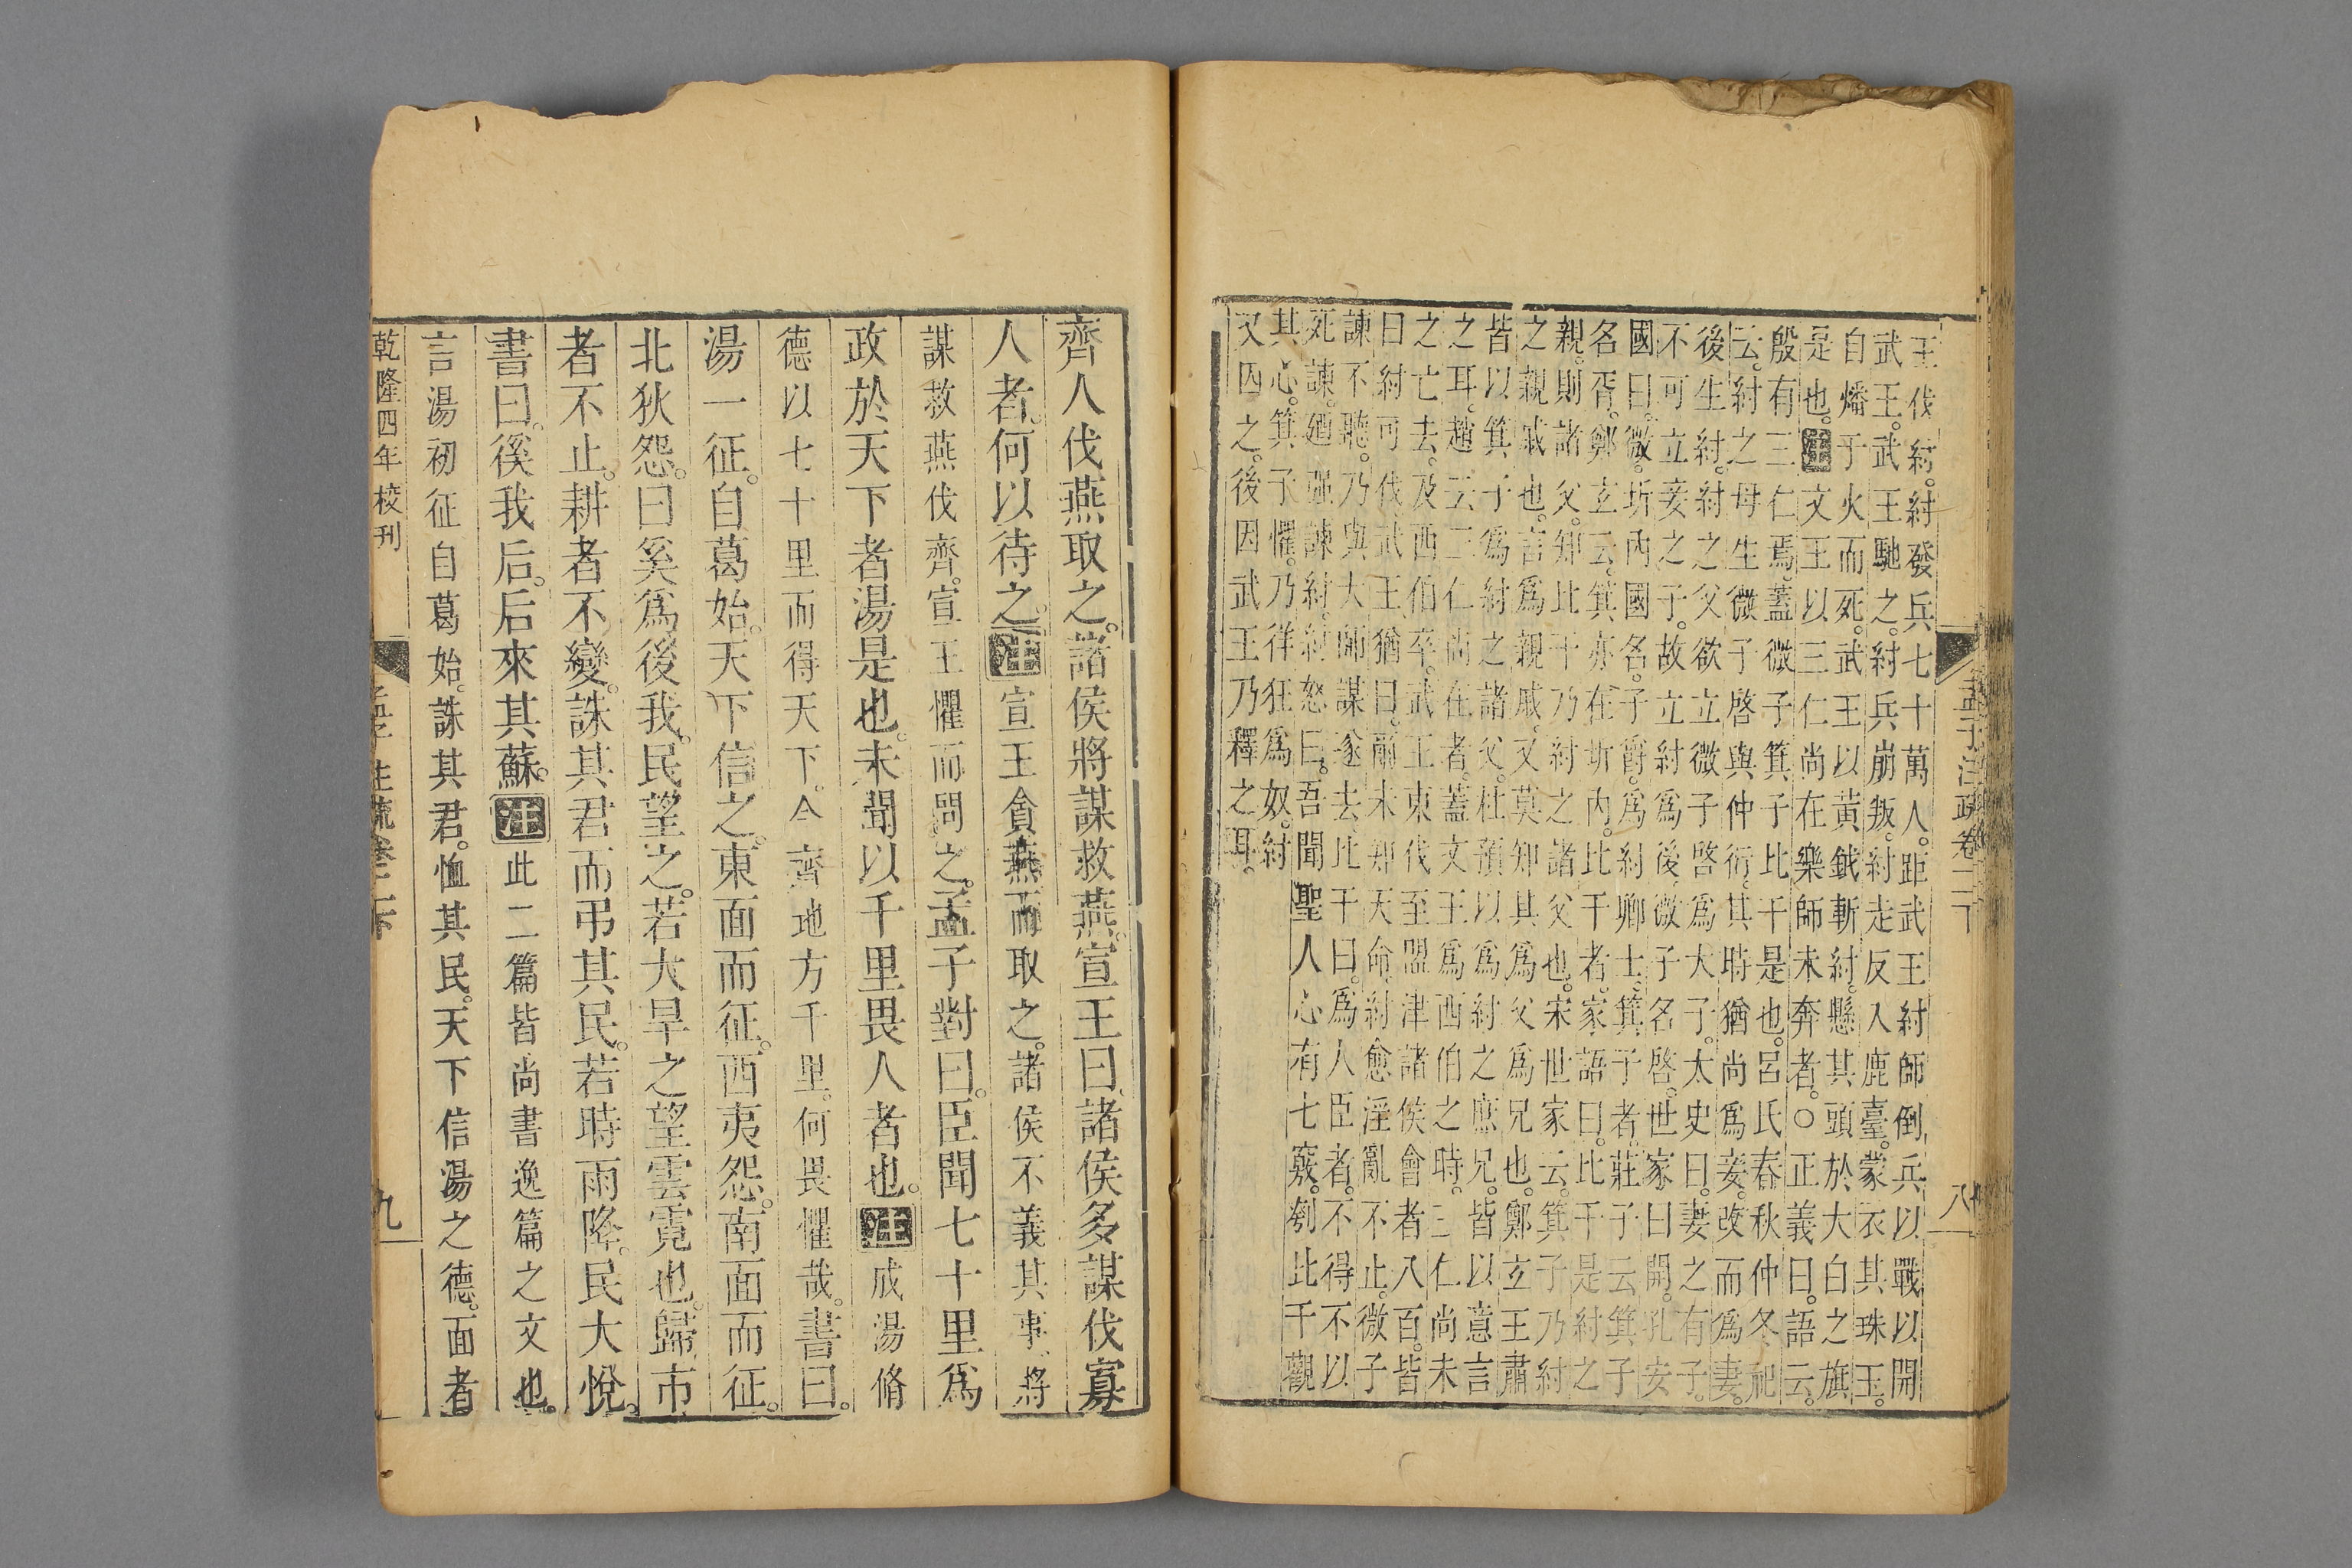 王伐紂。紂發兵七十萬人。距武王紂師倒兵。以戰以開
武王。武王馳之。紂兵崩叛。紂走反入鹿臺。蒙衣其珠玉。
自燔于火而死。武王以黃鉞斬紂。懸其頭於大白之旗
是也。注文王以三仁尚在樂師未奔者。○正義曰。語云。
殷有三仁焉。蓋微子箕子比干是也。呂氏春秋仲冬祀
云。紂之母生微子啓與仲衍。其時猶尚爲妾。改而爲妻。
後生紂。紂之父欲立微子啓爲大子。太史曰。妻之有子。
不可立妾之子。故立紂爲後。微子名啓。世家曰開。孔安
國曰。微。圻內國名。子爵。爲紂卿士。箕子者。莊子云箕子
名胥。鄭玄云。箕亦在圻內。比干者。家語曰。比干是紂之
親。則諸父。知比干乃紂之諸父也。宋世家云。箕子乃紂
之親戚也。言爲親戚。又莫知其爲父爲兄也。鄭玄王肅
皆以箕子爲紂之諸父。杜預以爲紂之庶兄。皆以意言
之耳。趙云三仁尚在者。蓋文王爲西伯之時。三仁尚未
之亡去。及西伯卒。武王東伐至盟津諸侯會者八百。皆
曰紂可伐武王猶曰。爾未知天命。紂愈淫亂不止。微子
諫不聽。乃與大師謀遂去。比干曰。爲人臣者。不得不以
死諫。廼強諫紂。紂怒曰。吾聞聖人心有七竅。刳比干觀
其心。箕子懼。乃徉狂爲奴。紂
又囚之。後因武王乃釋之耳。
孟子注疏卷二下
八
齊人伐燕取之。諸侯將謀救燕。宣王曰。諸侯多謀伐寡
人者。何以待之。注宣王貪燕而取之。諸侯不義其事、將
謀救燕伐齊。宣王懼而問之。孟子對曰。臣聞七十里爲
政於天下者湯是也。未聞以千里畏人者也。注成湯脩
德以七十里而得天下。今齊地方千里。何畏懼哉。書曰。
湯一征。自葛始。天下信之。東面而征。西夷怨。南面而征。
北狄怨。曰奚爲後我。民望之。若大旱之望雲霓也。歸市
者不止。耕者不變。誅其君而弔其民。若時雨降。民大悅。
書曰。徯我后。后來其蘇。注此二篇皆尚書逸篇之文也。
言湯初征自葛始。誅其君。恤其民。天下信湯之德。面者
乾隆四年校刊
孟子注疏卷二下
九